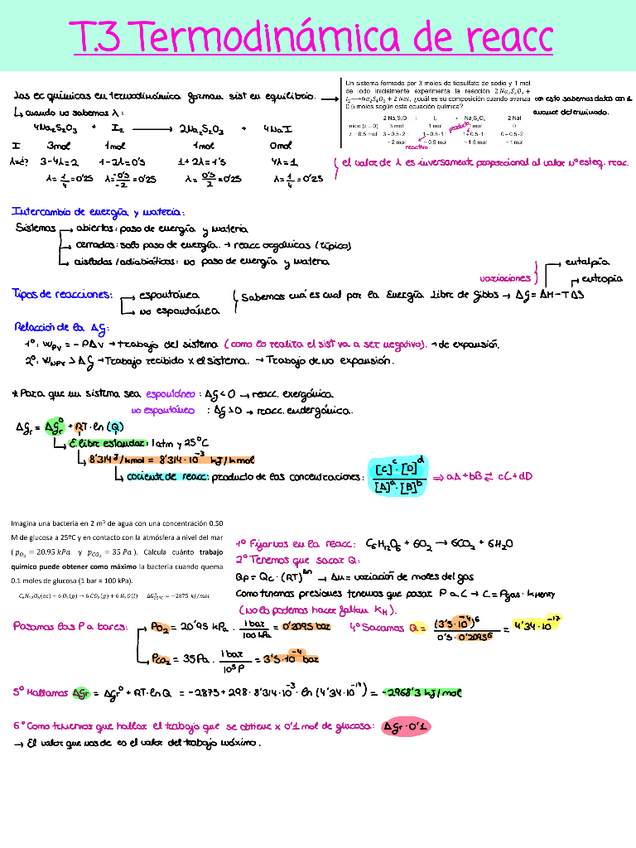 T.3 Termodinámica de reacc
Las ec químicas en termodinámica forman sist en equilibrio.
↳ cuando no sabemos λ:
Un sistema formado por 3 moles de tiosulfato de sodio y 1 mol
de iodo inicialmente experimenta la reacción 2 Na₂S₂O₃ +
I₂ ⟶ Na₂S₄O₆ + 2 NaI, ¿cuál es su composición cuando avanza
0.5 moles según esta ecuación química?
con esto sabemos datos con el
avance determinado.
2 Na₂S₂O₃ + I₂ Na₂S₄O₆ 2 NaI
3 mol 1 mol 1 mol 0
3 - 0.5·2 1 - 0.5·1 1 + 0.5·1 0 - 0.5·2
= 2 mol = 0.5 mol = 1.5 mol = 1 mol
reactivo
producto
4Na₂S₂O₃ + I₂ ⟶ 2Na₂S₂O₃ + 4NaI
I 3mol 1mol 1mol 0mol
λ=¿? 3-4λ=2 1-2λ=0'5 1+2λ=1'5 4λ=1
λ = 1/4 = 0'25 λ = -0'5/-2 = 0'25 λ = 0'5/2 = 0'25 λ = 1/4 = 0'25
el valor de λ es inversamente proporcional al valor nº esteq. reac.
Intercambio de energía y materia:
Sistemas → abiertos: paso de energía y materia
→ cerrados: solo paso de energía. → reacc orgánicas (típico)
→ aislados/adiabáticos: no paso de energía y materia
variaciones → entalpía
→ entropia
Tipos de reacciones: → espontánea
→ no espontánea
Sabemos cuá es cual por la Energía Libre de Gibbs → ΔG = ΔH - T ΔS
Relación de la ΔG:
1º: Wpv = - PΔV → trabajo del sistema (como lo realiza el sist va a ser negativo). → de expansión.
2º: Wnpv ≥ ΔG → Trabajo recibido x el sistema. → Trabajo de no expansión.
* Para que un sistema sea espontáneo: ΔG < 0 → reacc. exergónica.
no espontáneo: ΔG > 0 → reacc. endergónica.
ΔGr = ΔGr⁰ + RT · ln (Q)
↳ E. libre estandar: 1 atm y 25°C
↳ 8'314 J/kmol = 8'314·10⁻³ kJ/kmol
↳ cociente de reacc: producto de las concentraciones: [C]ᶜ·[D]ᵈ / [A]ᵃ·[B]ᵇ ⇒ aA+bB ⇄ cC+dD
Imagina una bacteria en 2 m³ de agua con una concentración 0.50
M de glucosa a 25ºC y en contacto con la atmósfera a nivel del mar
( p_O₂ = 20.95 kPa y p_CO₂ = 35 Pa ). Calcula cuánto trabajo
químico puede obtener como máximo la bacteria cuando quema
0.1 moles de glucosa (1 bar = 100 kPa).
C₆H₁₂O₆(ac) + 6 O₂(g) → 6 CO₂(g) + 6 H₂O(l) ΔG⁰ = -2875 kJ/mol
1º Fijarnos en la reacc: C₆H₁₂O₆ + 6O₂ ⟶ 6CO₂ + 6H₂O
2º Tenemos que sacar Q:
Qp = Qc · (RT)^Δn → Δn = variación de moles del gas
Como tenemos presiones tenemos que pasar P a C → C = Pgas · kHenry
(No lo podemos hacer faltan KH).
Pasamos las P a bares: → PO₂ = 20'95 kPa · 1 bar/100 kPa = 0'2095 bar
→ PCO₂ = 35 Pa · 1 bar/10⁵ P = 3'5·10⁻⁴ bar
4º Sacamos Q = (3'5·10⁻⁴)⁶ / 0'5·0'2095⁶ = 4'34·10⁻¹⁷
5º Hallamos ΔGr = ΔGr⁰ + RT·ln Q = -2875 + 298·8'314·10⁻³·ln (4'34·10⁻¹⁷) = -2968'3 kJ/mol
6º Como tenemos que hallar el trabajo que se obtiene x 0'1 mol de glucosa: ΔGr·0'1
→ El valor que nos de es el valor del trabajo máximo.